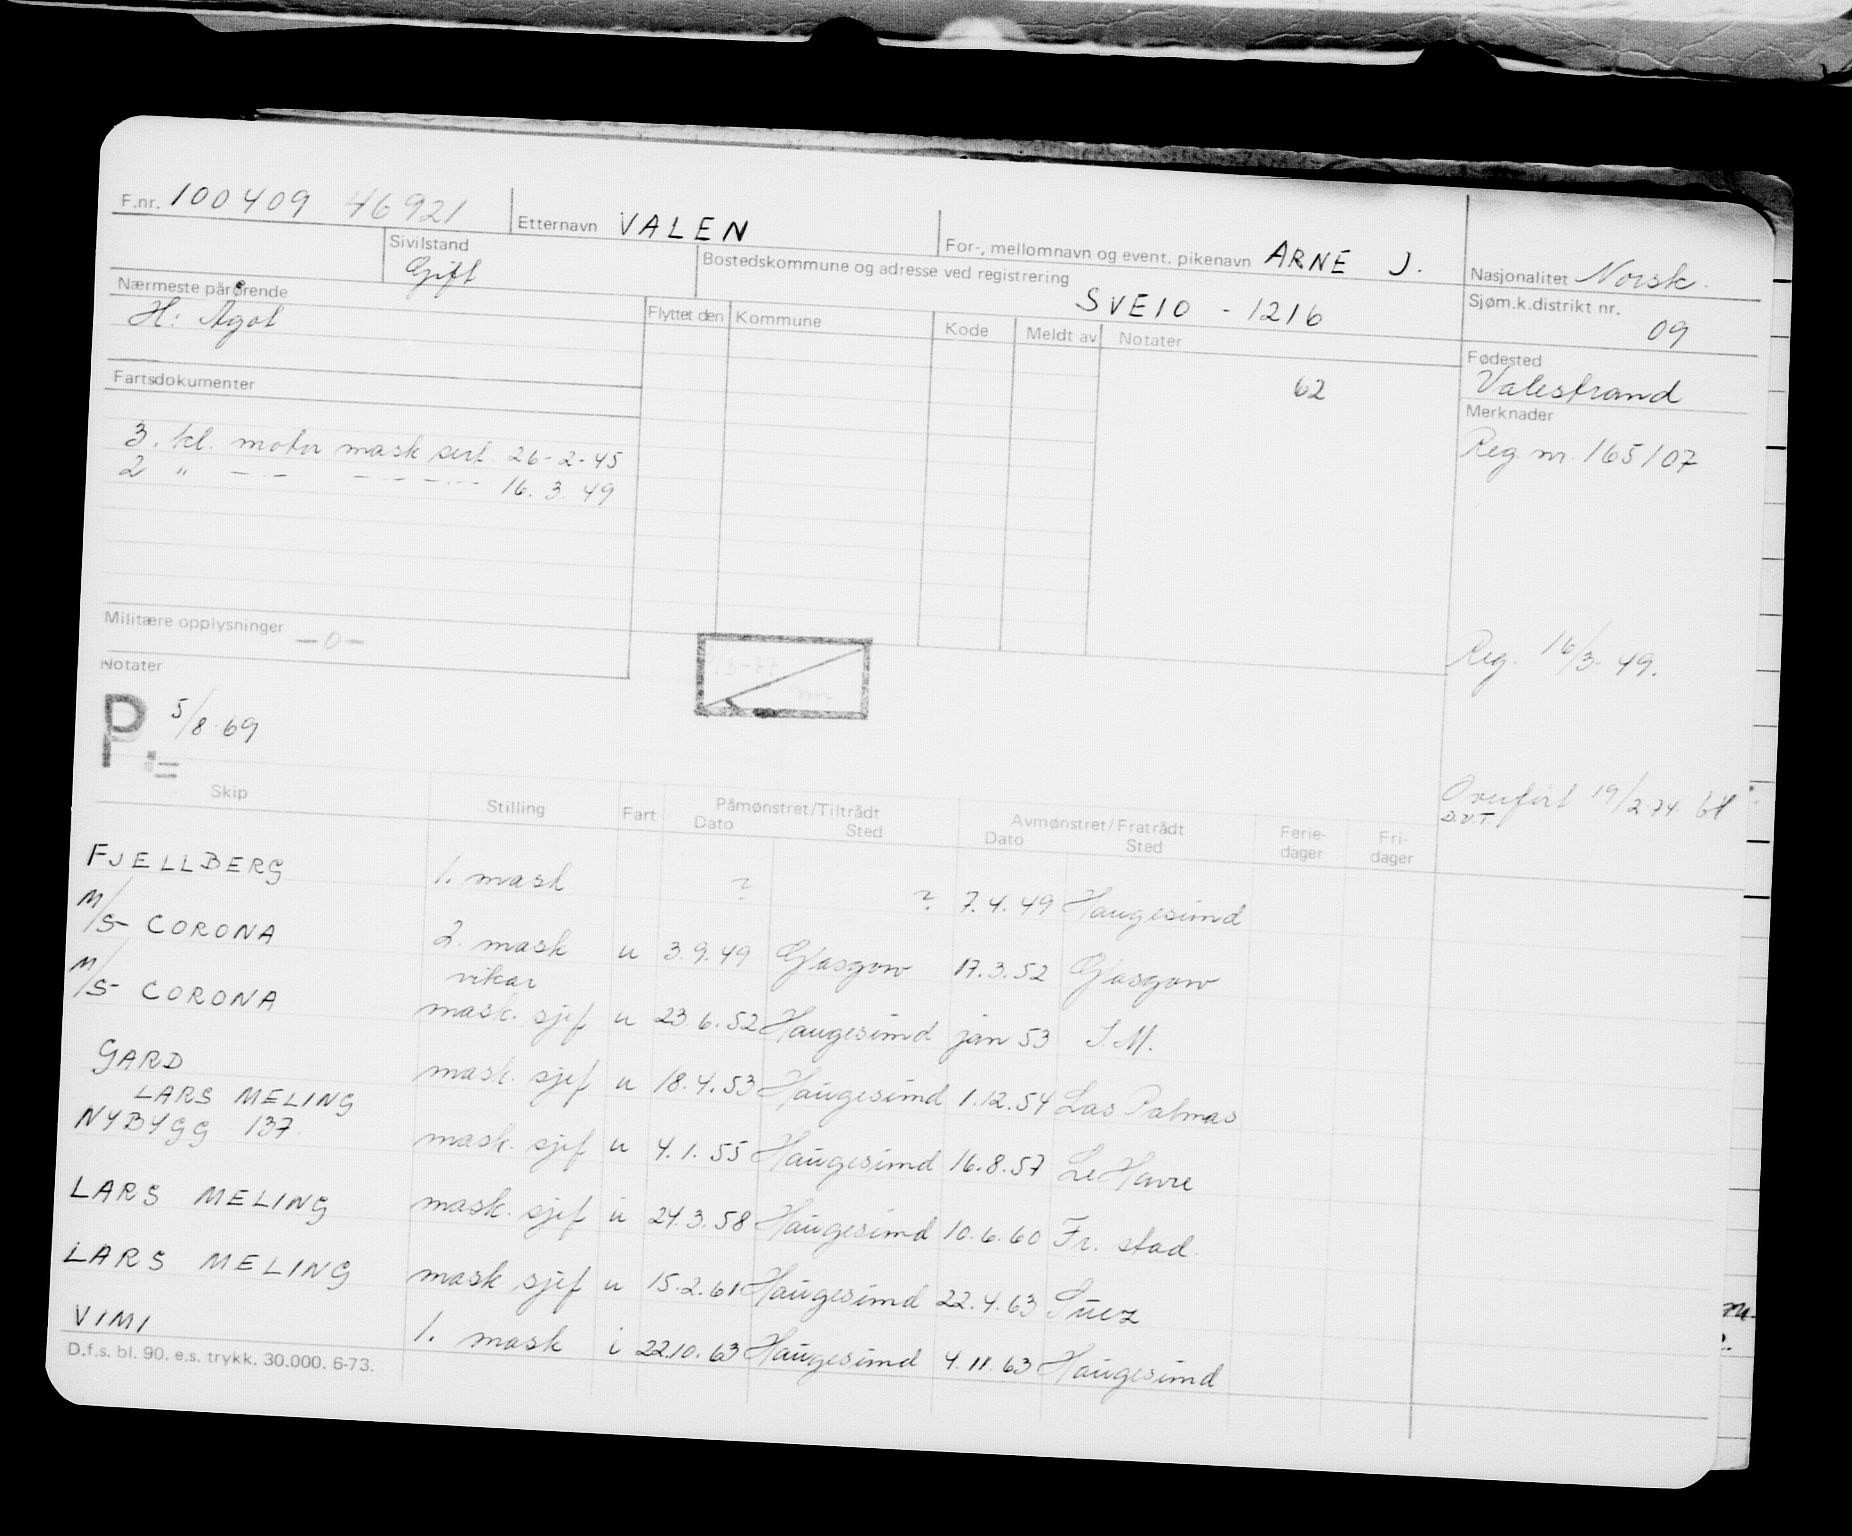 F.nr. 100409 46921 Etternavn VALEN For-, mellomnavn og event. pikenavn ARNE J. Nasjonalitet Norsk.
Sivilstand Gift Bostedskommune og adresse ved registrering SVEIO - 1216 Sjøm.k.distrikt nr. 09
Nærmeste pårørende H: Ågot
Flyttet den Kommune Kode Meldt av Notater
62
Fødested Valestrand
Merknader
Reg nr. 165107
Fartsdokumenter
3. kl. motor mask sert. 26-2-45
2 " — - — — - — - — 16. 3. 49
Militære opplysninger — 0 —
Reg. 16/3-49.
Notater
P 5/8-69
Overført 19/2-74
D.V.T.
Skip Stilling Fart Påmønstret/Tiltrådt Avmønstret/Fratrådt Ferie- Fri-
Dato Sted Dato Sted dager dager
FJELLBERG 1. mask ? ? 7.4.49 Haugesund
M/S CORONA 2. mask u 3.9.49 Glasgow 17.3.52 Glasgow
vikar
M/S CORONA mask. sjef u 23.6.52 Haugesund jan 53 I.M.
GARD mask. sjef u 18.4.53 Haugesund 1.12.54 Las Palmas
LARS MELING
NYBYGG 137. mask. sjef u 4.1.55 Haugesund 16.8.57 Le Havre
LARS MELING mask. sjef u 24.3.58 Haugesund 10.6.60 Fr. stad.
LARS MELING mask sjef u 15.2.61 Haugesund 22.4.63 Suez
VIMI 1. mask i 22.10.63 Haugesund 4.11.63 Haugesund
D.f.s. bl. 90. e.s. trykk. 30.000. 6-73.